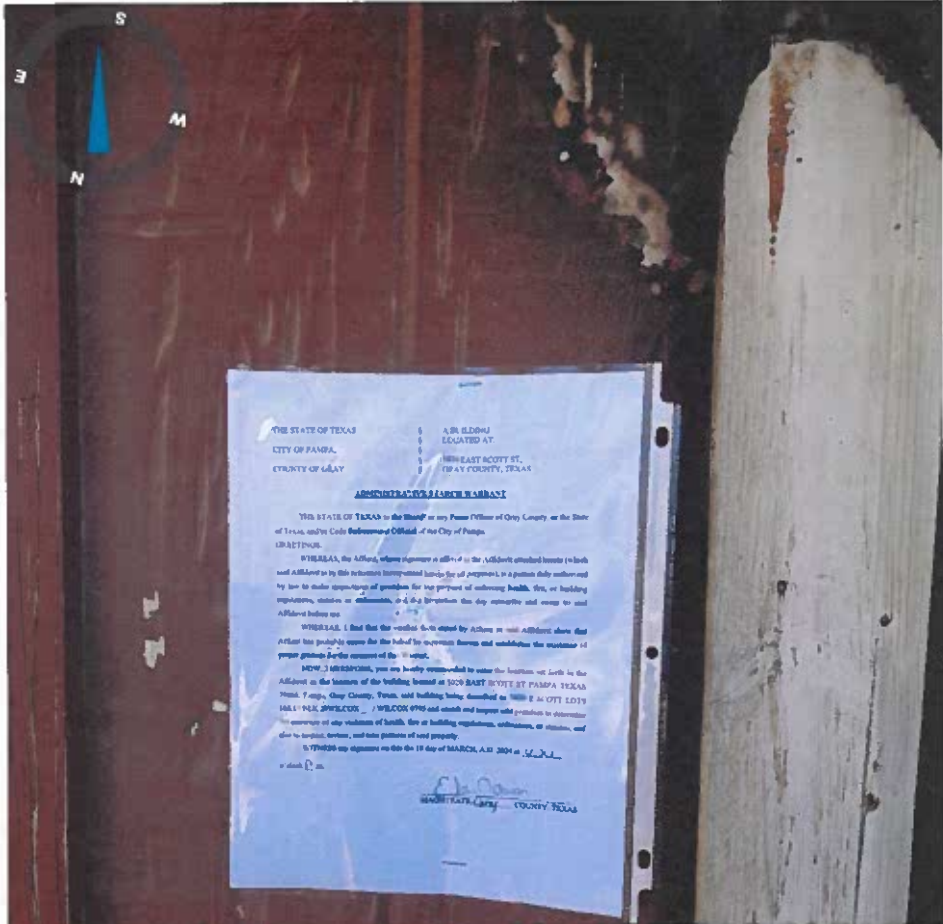 S
E
W
N
THE STATE OF TEXAS § A BUILDING
§ LOCATED AT
CITY OF PAMPA, §
§ EAST SCOTT ST,
COUNTY OF GRAY § GRAY COUNTY, TEXAS
ADMINISTRATIVE SEARCH WARRANT
THE STATE OF TEXAS to the Sheriff or any Peace Officer of Gray County, or the State
of Texas, and/or Code Enforcement Official of the City of Pampa
GREETINGS:
WHEREAS, the Affiant, whose signature is affixed to the Affidavit attached hereto (which
said Affidavit is by this reference incorporated herein for all purposes), is a person duly authorized
by law to make inspections of premises for the purpose of enforcing health, fire, or building
regulations, statutes or ordinances, and did heretofore this day subscribe and swear to said
Affidavit before me
WHEREAS, I find that the verified facts stated by Affiant in said Affidavit show that
Affiant has probable cause for the belief he expresses therein and establishes the existence of
proper grounds for the issuance of this Warrant.
NOW, THEREFORE, you are hereby commanded to enter the location set forth in the
Affidavit as the location of the building located at 1020 EAST SCOTT ST PAMPA TEXAS
Pampa, Gray County, Texas, said building being described as E SCOTT LOTS
BLK WILCOX / WILCOX and search and inspect said premises to determine
the existence of any violation of health, fire or building regulations, ordinances, or statutes, and
also to inspect, and take pictures of said property.
WITNESS my signature on this the 19 day of MARCH, A.D. 2024 at
o'clock P. m.
MAGISTRATE Gray COUNTY TEXAS